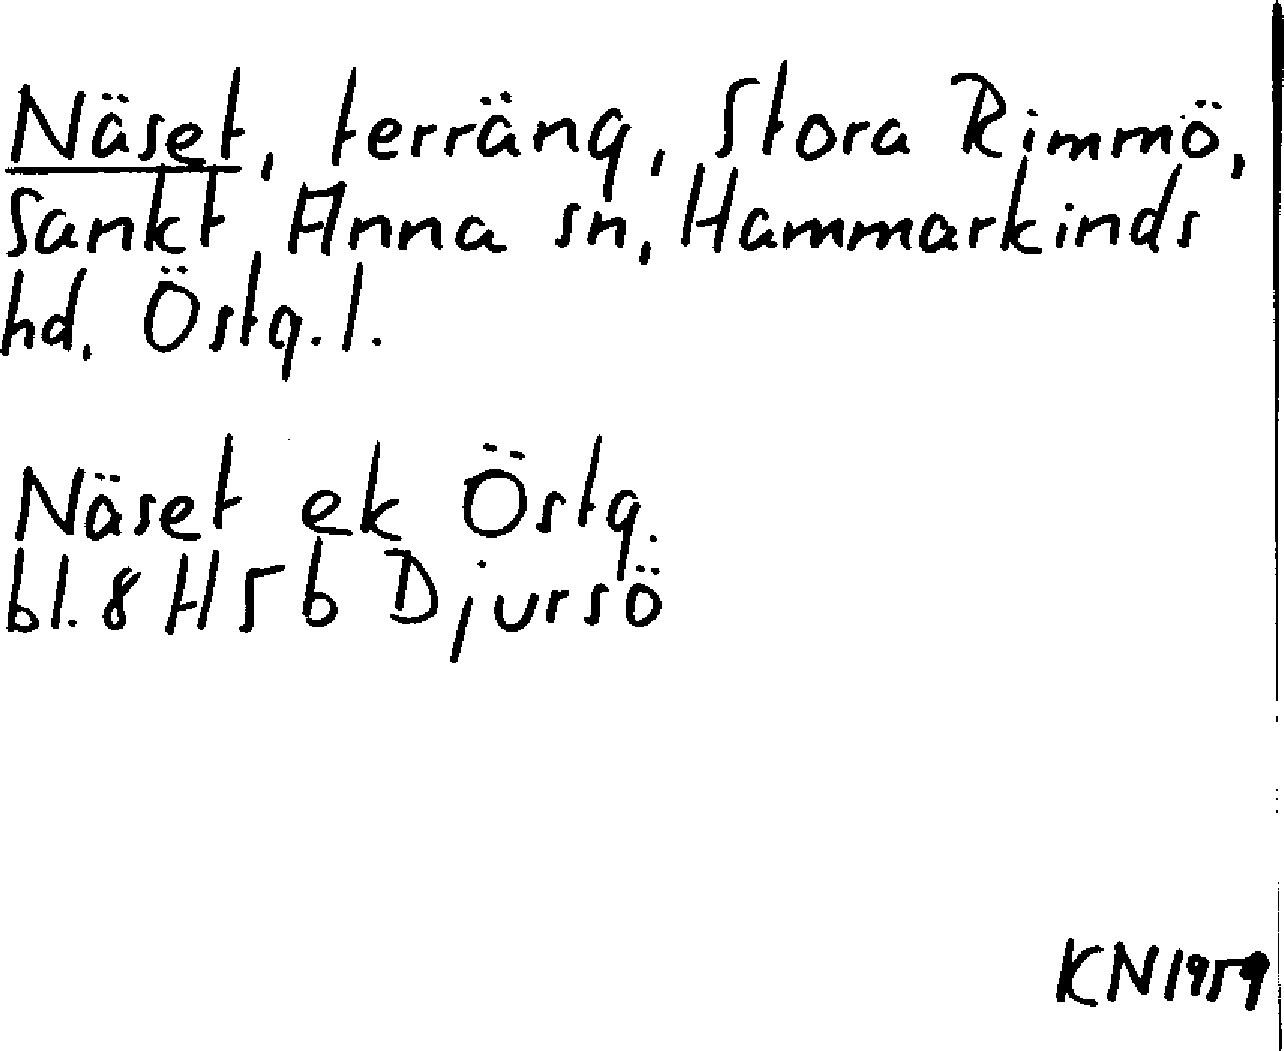 Näset, terräng, Stora Rimmö,
Sankt Anna sn, Hammarkinds
hd, Östg.l.
Näset ek Östg.
bl. 8 H 5 b Djursö
KN 1959